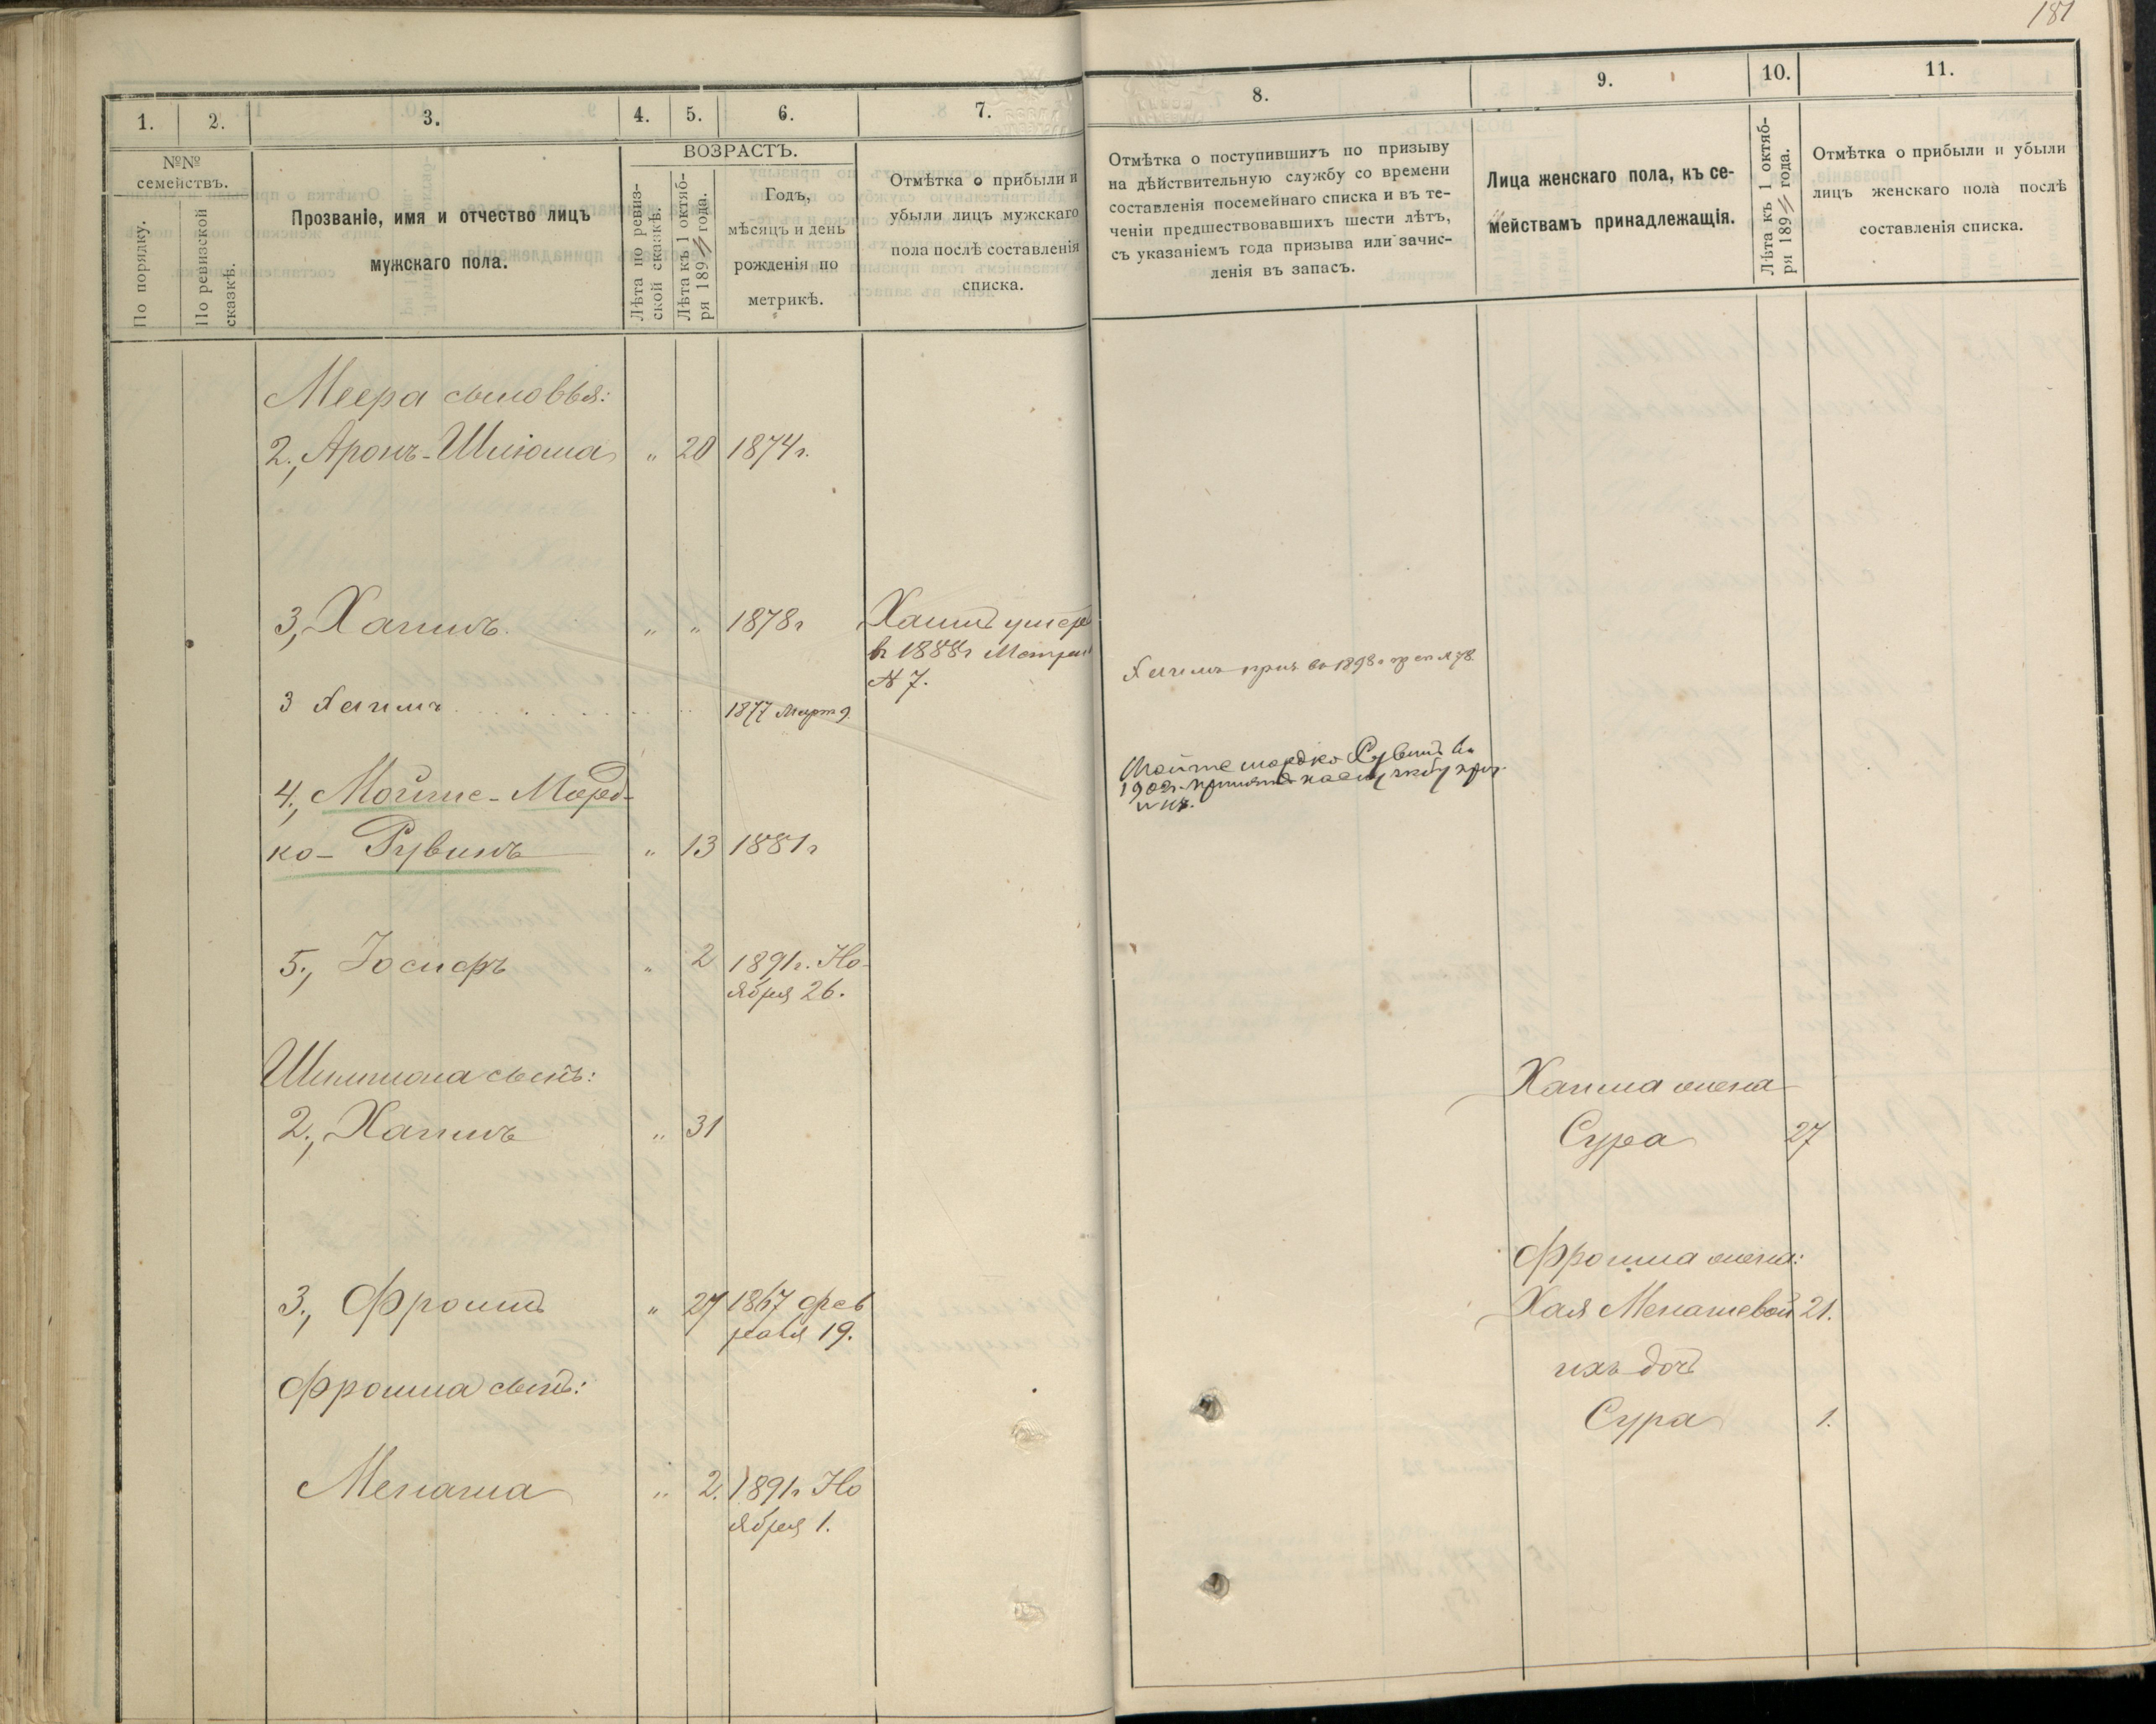 181
1.
2.
3.
4.
5.
6.
7.
8.
9.
10.
11.
№№ семействъ.
По порядку.
По ревизской сказкѣ.
Прозваніе, имя и отчество лицъ
мужскаго пола.
ВОЗРАСТЪ.
Лѣта по ревиз-
ской сказкѣ.
Лѣта къ 1 октяб-
ря 189 года.
Годъ,
мѣсяцъ и день
рожденія по
метрикѣ.
Отмѣтка о прибыли и
убыли лицъ мужскаго
пола послѣ составленія
списка.
Отмѣтка о поступившихъ по призыву
на дѣйствительную службу со времени
составленія посемейнаго списка и въ те-
ченіи предшествовавшихъ шести лѣтъ,
съ указаніемъ года призыва или зачис-
ленія въ запасъ.
Лица женскаго пола, къ се-
мействамъ принадлежащія.
Лѣта къ 1 октяб-
ря 189 года.
Отмѣтка о прибыли и убыли
лицъ женскаго пола послѣ
составленія списка.
Меера сыновья:
2., Аронъ-Шлiома " 20 1874г.
3, Хаимъ. " " 1878г Хаимъ умеръ
въ 1888г
№ 7.
3 Хаимъ 1877 Март 9.
Хаимъ въ 1898г
4., Мойше-Морд-
ко-Рувинъ " 13 1881г
Мойше мордко Рувинъ въ
5., Іосифъ " 2 1891г. Но-
ября 26.
Шлиома сынъ:
2., Хаимъ " 31
Хаима жена
Сура 27
3., Фроимъ " 27 1867 фев
раля 19.
Фроима жена:
Хая Менашевой 21.
Фроима сынъ:
ихъ дочь
Сура 1.
Менаша " 2. 1891г Но
ября 1.